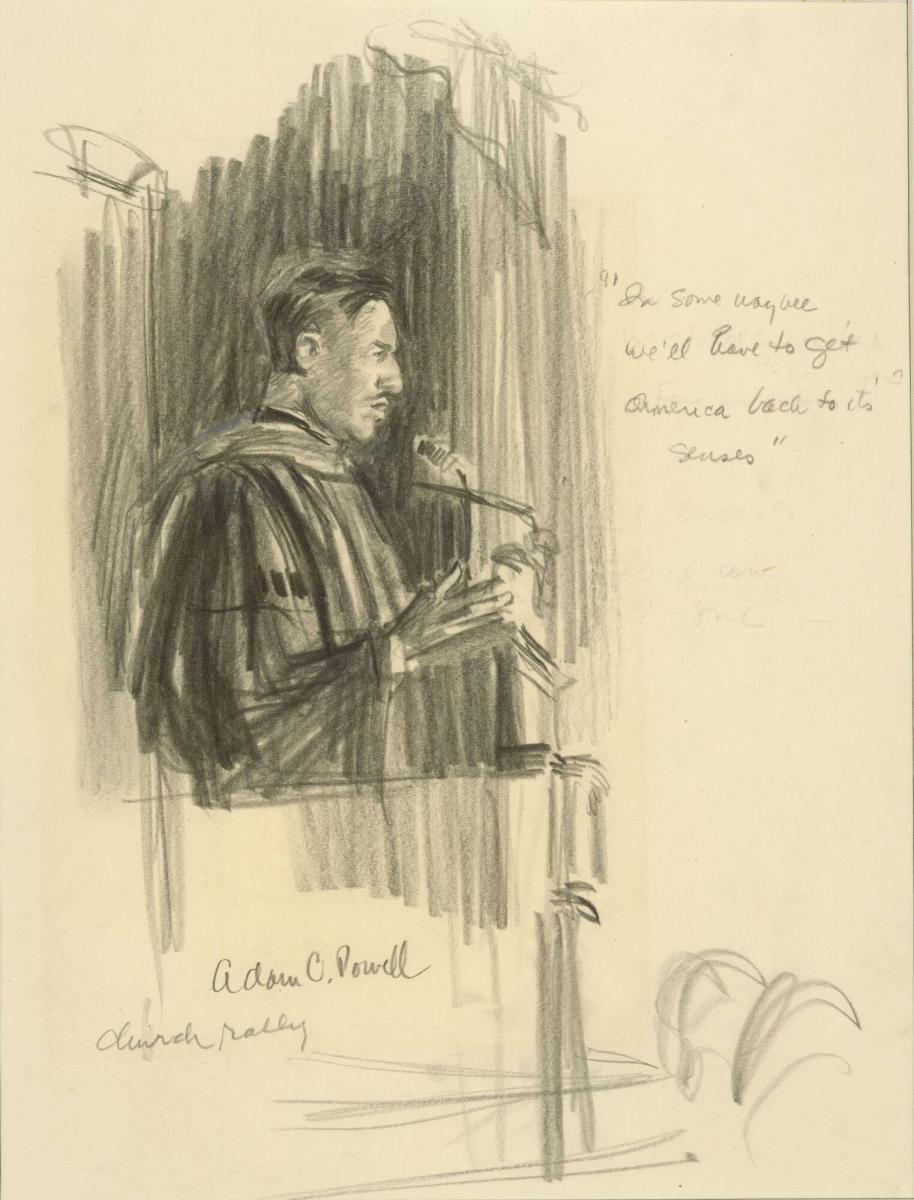 "In some way we
we'll have to get
America back to its'
senses"
Adam C. Powell
church rally